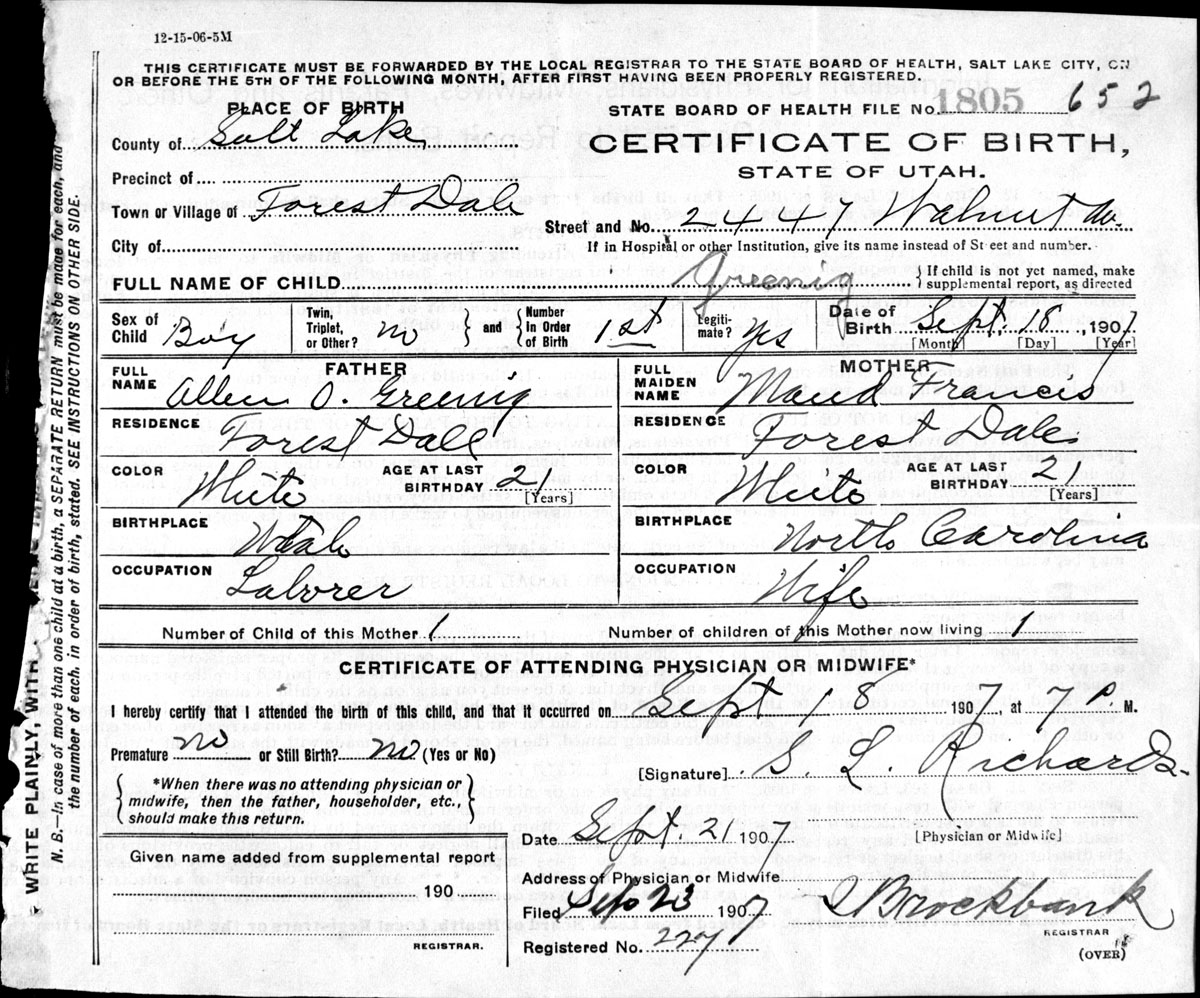 12-15-06-5M
THIS CERTIFICATE MUST BE FORWARDED BY THE LOCAL REGISTRAR TO THE STATE BOARD OF HEALTH, SALT LAKE CITY, ON
OR BEFORE THE 5TH OF THE FOLLOWING MONTH, AFTER FIRST HAVING BEEN PROPERLY REGISTERED.
PLACE OF BIRTH
STATE BOARD OF HEALTH FILE No. 1805 652
County of Salt Lake
CERTIFICATE OF BIRTH,
STATE OF UTAH.
Precinct of
Town or Village of Forest Dale
Street and No. 2447 Walnut Av.
City of
If in Hospital or other Institution, give its name instead of Street and number.
FULL NAME OF CHILD Greenig { If child is not yet named, make supplemental report, as directed
Sex of Child Boy
Twin, Triplet, or Other? no } and { Number in Order of Birth 1st
Legitimate? Yes
Date of Birth Sept. 18, 1907
[Month] [Day] [Year]
FATHER
FULL NAME Allen O. Greenig
RESIDENCE Forest Dale
COLOR White AGE AT LAST BIRTHDAY 21 [Years]
BIRTHPLACE Utah
OCCUPATION Laborer
MOTHER
FULL MAIDEN NAME Maud Francis
RESIDENCE Forest Dale
COLOR White AGE AT LAST BIRTHDAY 21 [Years]
BIRTHPLACE North Carolina
OCCUPATION Wife
Number of Child of this Mother 1 Number of children of this Mother now living 1
CERTIFICATE OF ATTENDING PHYSICIAN OR MIDWIFE*
I hereby certify that I attended the birth of this child, and that it occurred on Sept 18 1907, at 7 P. M.
Premature no or Still Birth? no (Yes or No)
[Signature] S. L. Richards
*When there was no attending physician or
midwife, then the father, householder, etc.,
should make this return.
Date Sept. 21 1907 [Physician or Midwife]
Given name added from supplemental report
190
REGISTRAR.
Address of Physician or Midwife
Filed Sep 23 1907 Brockbank
REGISTRAR
Registered No. 2277
(OVER)
WRITE PLAINLY, WITH
N. B.—In case of more than one child at a birth, a SEPARATE RETURN must be made for each, and
the number of each, in order of birth, stated. SEE INSTRUCTIONS ON OTHER SIDE.